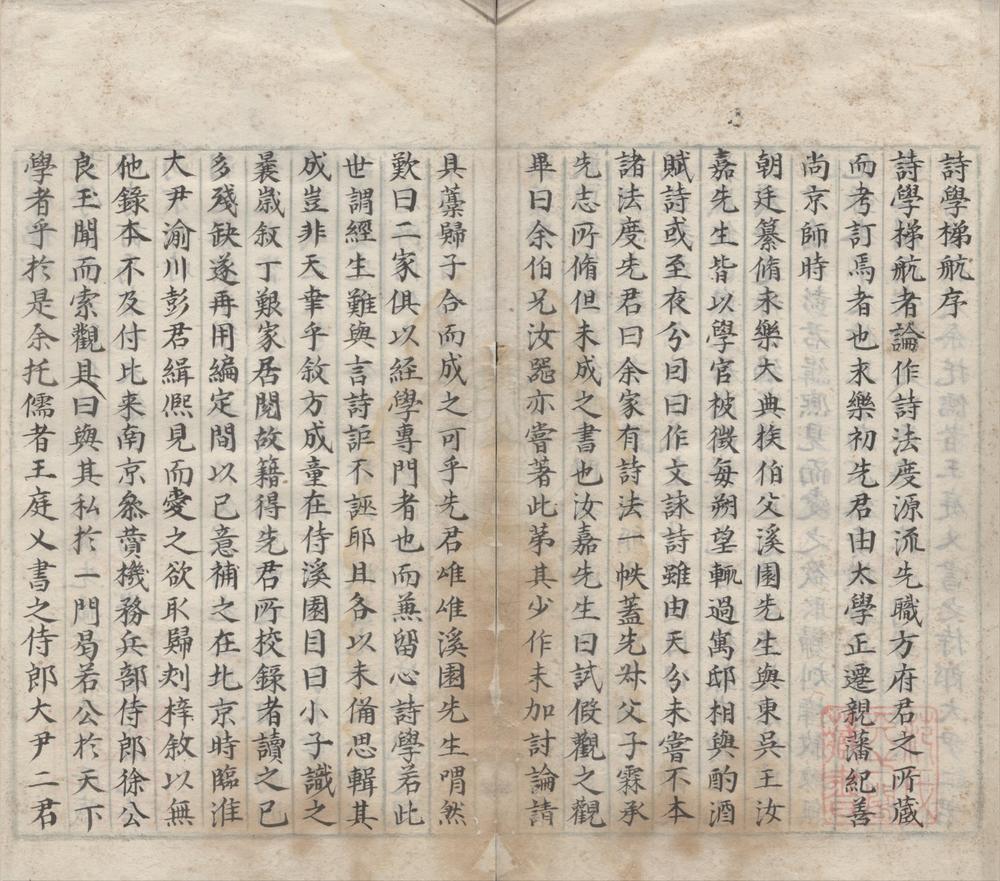 詩學梯航序
詩學梯航者論作詩法度源流先職方府君之所蔵
而考訂焉者也永樂初先君由太學正遷親藩紀善
尚京師時
朝廷纂脩永樂大典族伯父溪園先生與東吳王汝
嘉先生皆以學官被徴每朔望輒過寓邸相與酌酒
賦詩或至夜分曰曰作文詠詩雖由天分未嘗不本
諸法度先君曰余家有詩法一帙蓋先叔父子霖承
先志所脩但未成之書也汝嘉先生曰試假觀之觀
畢曰余伯兄汝噐亦嘗著此苐其少作未加討論請
具藁歸子合而成之可乎先君唯唯溪園先生喟然
歎曰二家俱以経學專門者也而兼留心詩學若此
世謂經生難與言詩詎不誣耶且各以未俻思輯其
成豈非天幸乎敘方成童在侍溪園目曰小子識之
曩嵗叙丁艱家居閲故籍得先君所校錄者讀之已
多殘缺遂再用編定間以已意補之在北京時臨淮
大尹渝川彭君緝熈見而愛之欲取歸刋梓敘以無
他錄本不及付比来南京叅賛機務兵部侍郎徐公
良玉聞而索觀且曰與其私於一門曷若公於天下
學者乎於是余托儒者王庭乂書之侍郎大尹二君